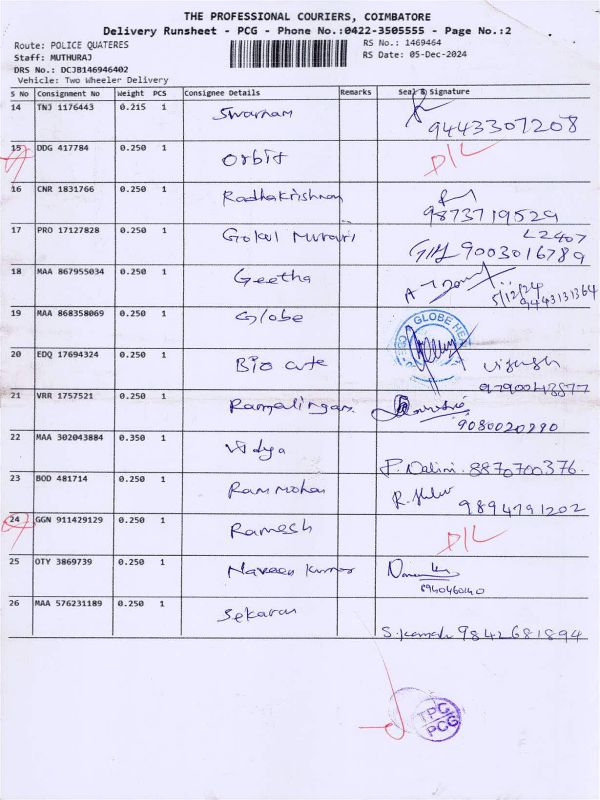 THE PROFESSIONAL COURIERS, COIMBATORE
Delivery Runsheet - PCG - Phone No.:0422-3505555 - Page No.:2
Route: POLICE QUATERES
RS No.: 1469464
Staff: MUTHURAJ
RS Date: 05-Dec-2024
DRS No.: DCJB146946402
Vehicle: Two Wheeler Delivery
S No Consignment No Weight PCS Consignee Details Remarks Seal & Signature
14 TNJ 1176443 0.215 1 Swarnam
9443307208
15 DDG 417784 0.250 1 Orbit D/L
16 CNR 1831766 0.250 1 Radhakrishnan
9873719529
17 PRO 17127828 0.250 1 Gokul Murari L2407
9003016789
18 MAA 867955034 0.250 1 Geetha
5/12/24
9443131364
19 MAA 868358069 0.250 1 Globe GLOBE
20 EDQ 17694324 0.250 1 Bio cute
9790043877
21 VRR 1757521 0.250 1 Ramalingam
9080020990
22 MAA 302043884 0.350 1 Vidya
P. Nalini. 8870700376.
23 BOD 481714 0.250 1 Ram mohan
9894791202
24 GGN 911429129 0.250 1 Ramesh D/L
25 OTY 3869739 0.250 1 Naveen kumar
8940460140
26 MAA 576231189 0.250 1 Sekaran
9842681894
TPC
PCG